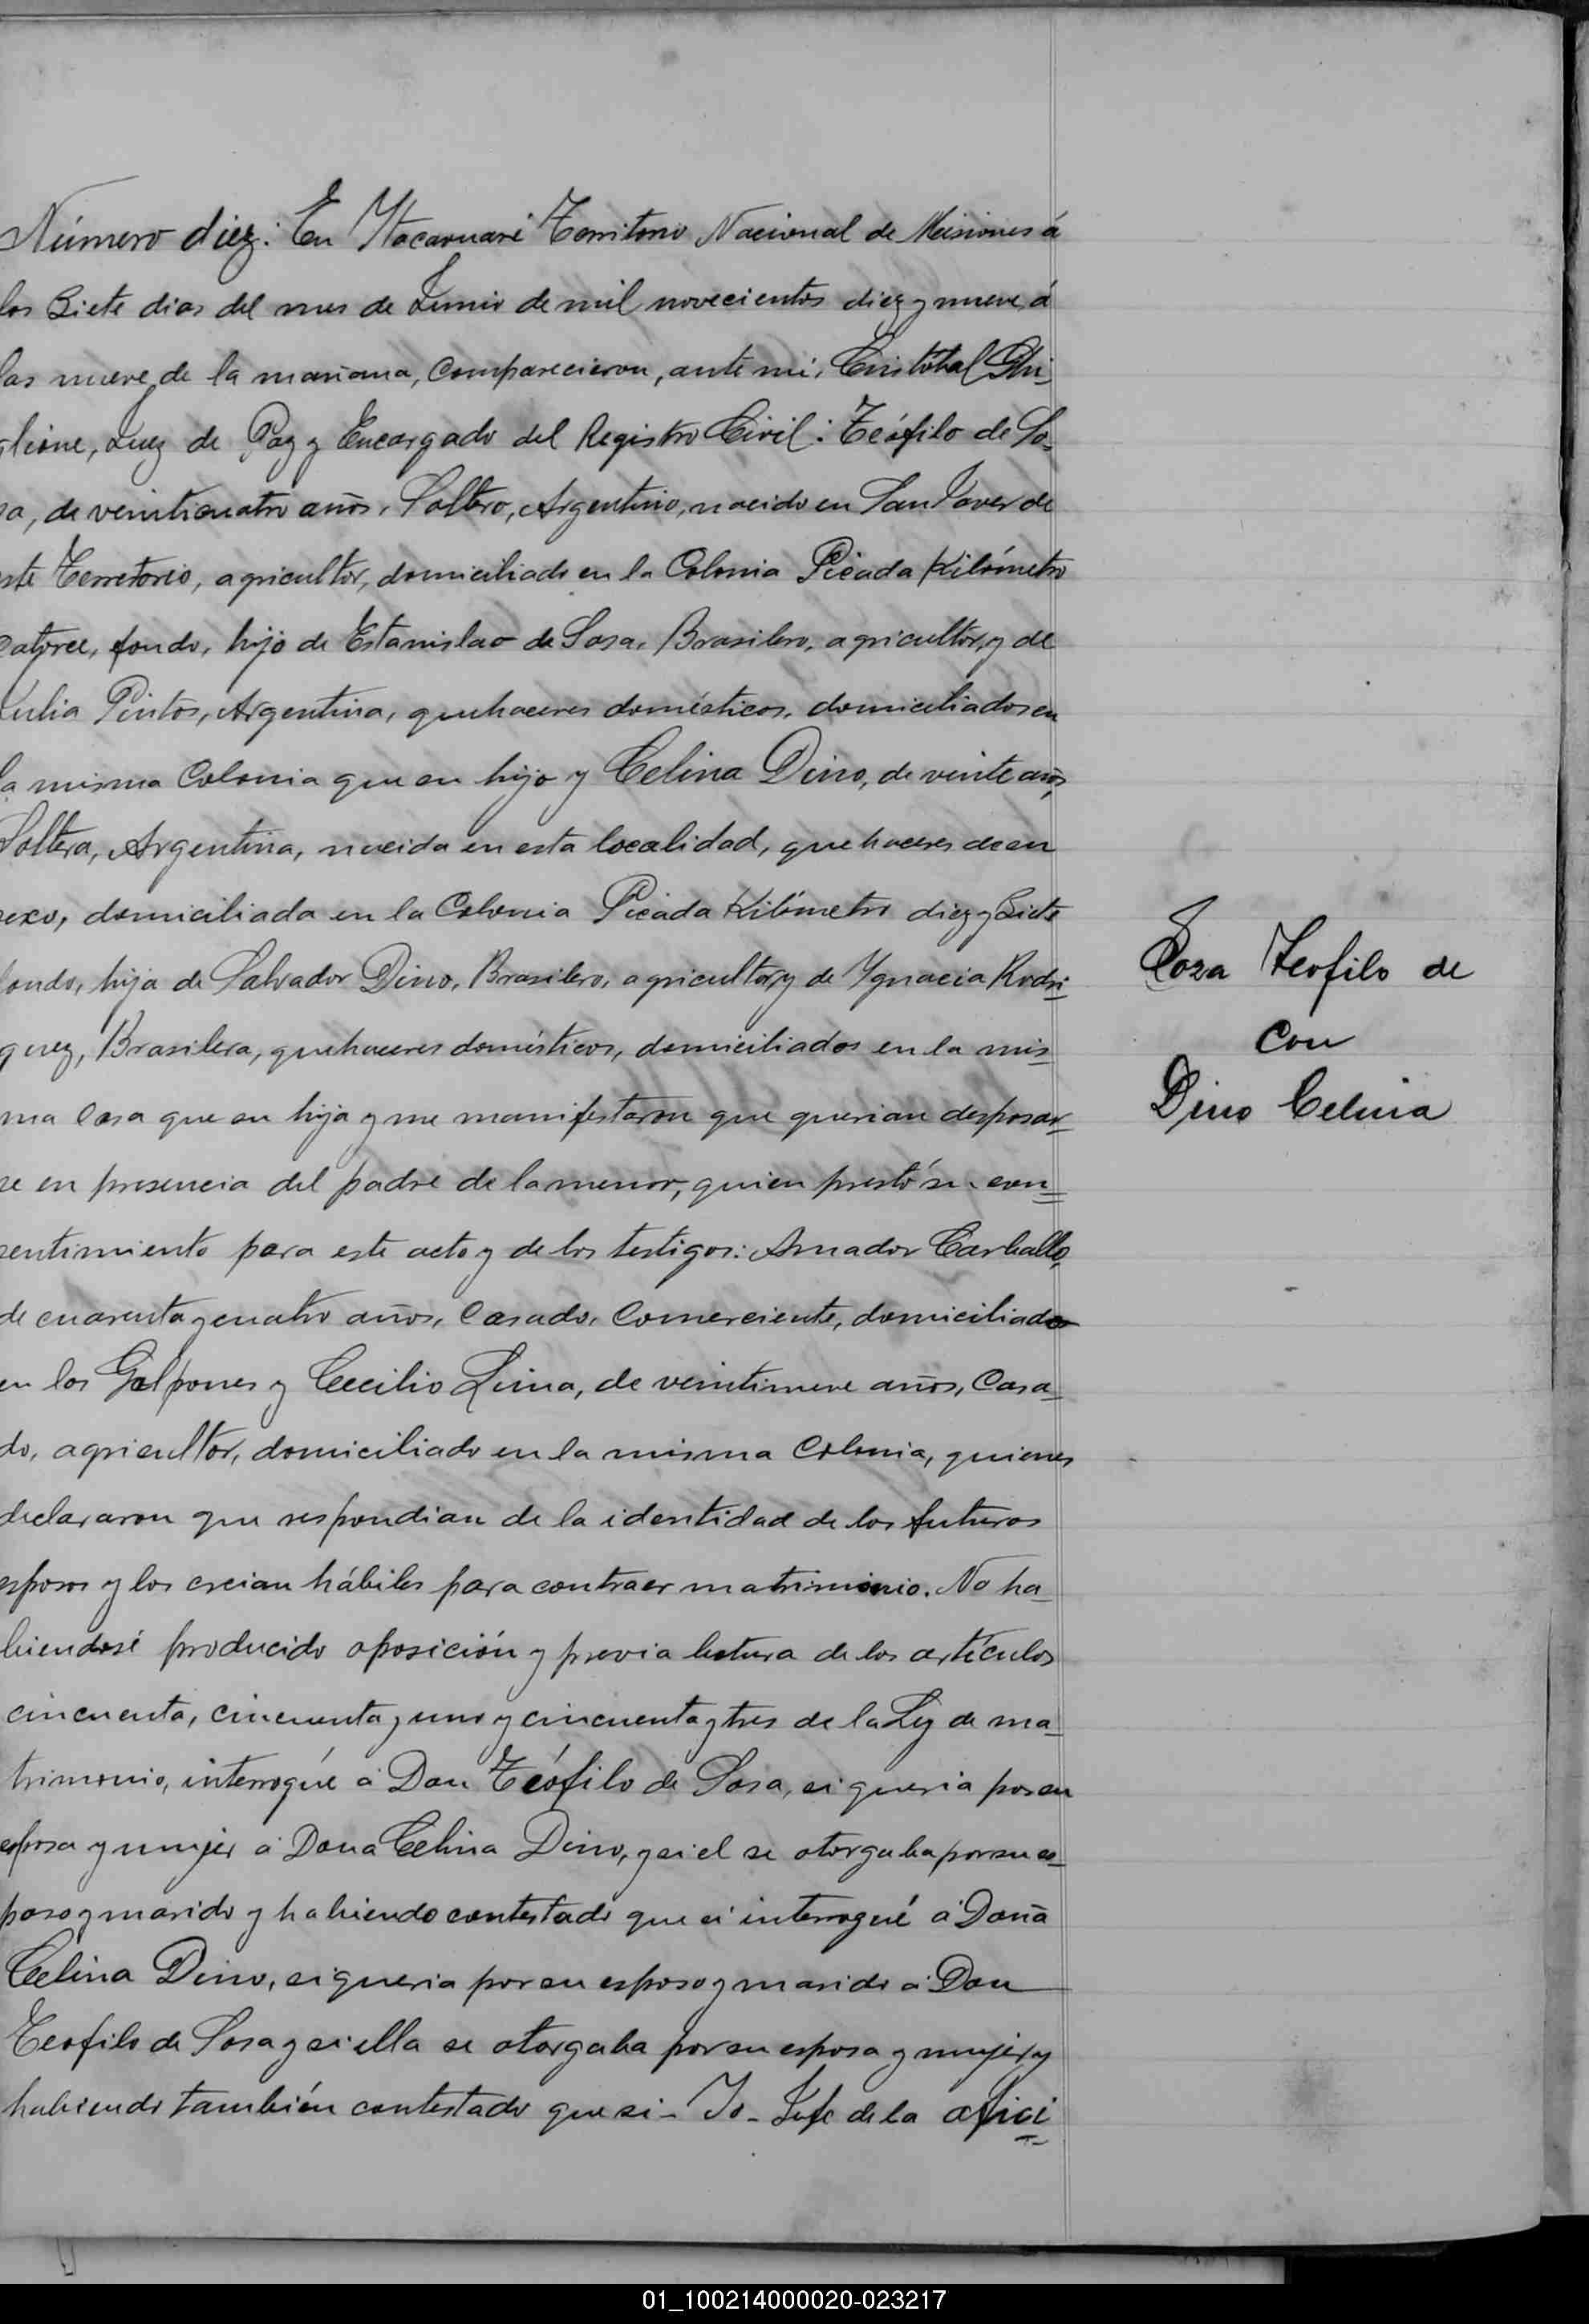 Número diez: En Itacaruaré Territorio Nacional de Misiones á
los Siete dias del mes de Junio de mil novecientos diez y nueve, á
las nueve de la mañana, comparecieron, ante mi, Cristóbal Ghi-
glione, Juez de Paz y Encargado del Registro Civil: Teófilo de So-
sa, de veinticuatro años, Soltero, Argentino, nacido en San Javer de
este Terretorio, agricultor, domiciliado en la Colonia Picada Kilómetro
catorce, fondo, hijo de Estanislao de Sosa, Brasilero, agricultor, y de
Julia Pintos, Argentina, quehaceres domésticos, domiciliados en
la misma Colonia que su hijo y Celina Dino, de veinte años,
Soltera, Argentina, nacida en esta localidad, quehaceres de su
sexo, domiciliada en la Colonia Picada Kilómetro diez y Siete
fondo, hija de Salvador Dino, Brasilero, agricultor, y de Ygnacia Rodri-
guez, Brasilera, quehaceres domésticos, domiciliados en la mis-
ma Casa que su hija y me manifestaron que querian desposar-
se en presencia del padre de la menor, quien prestó su con=
sentimiento para este acto y de los testigos: Amador Carballo,
de cuarenta y cuatro años, Casado, Comerciente, domiciliado
en los Galpones y Cecilio Lima, de veintinueve años, Casa-
do, agricultor, domiciliado en la misma Colonia, quienes
declararon que respondian de la identidad de los futuros
esposos y los creian hábiles para contraer matrimonio. No ha-
biendosé producido oposición y previa lectura de los artículos
cincuenta, cincuenta y uno y cincuenta y tres de la Ley de ma-
trimonio, interrogué á Don Teófilo de Sosa, si queria por su
esposa y mujer á Dona Celina Dino, y si el se otorgaba por su es-
poso y marido y habiendo contestado que si interrogué á Doña
Celina Dino, si queria por su esposo y marido á Don
Teofilo de Sosa y si ella se otorgaba por su esposa y mujer, y
habiendo también contestado que si - Yo - Jefe de la ofici-
Soza Teofilo de
Con
Dino Celina
01_100214000020-023217